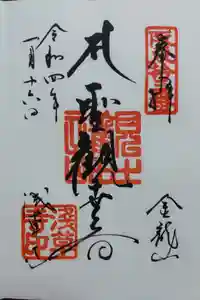 奉拝
聖観世音
令和四年
一月十六日
金龍山
浅草寺
淺草寺印